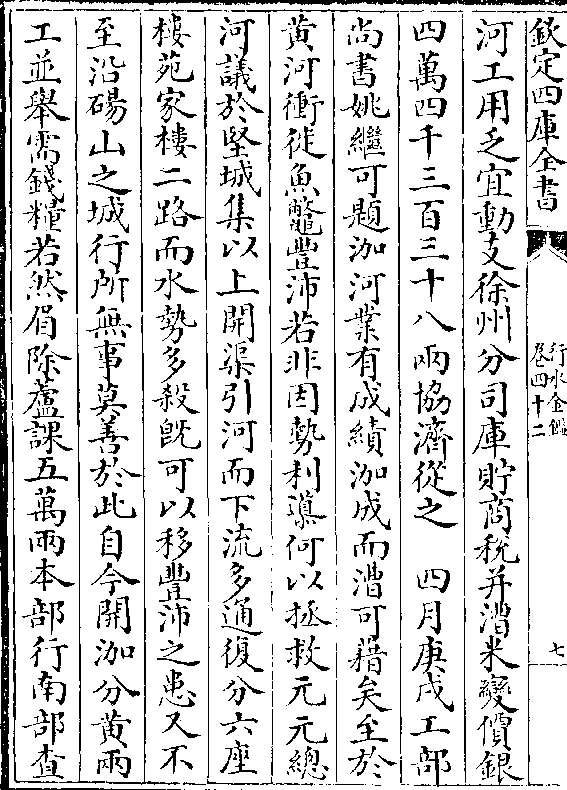 欽定四庫全書
行水金鑑
卷四十二
七
河工用乏宜動支徐州分司庫貯商稅并漕米變價銀
四萬四千三百三十八兩協濟從之　四月庚戌工部
尚書姚繼可題泇河業有成績泇成而漕可藉矣至於
黃河衝徙魚鼈豐沛若非因勢利導何以拯救元元總
河議於堅城集以上開渠引河而下流多通復分六座
樓苑家樓二路而水勢多殺旣可以移豐沛之患又不
至沿碭山之城行所無事莫善於此自今開泇分黃兩
工並舉需錢糧若然除蘆課五萬兩本部行南部查